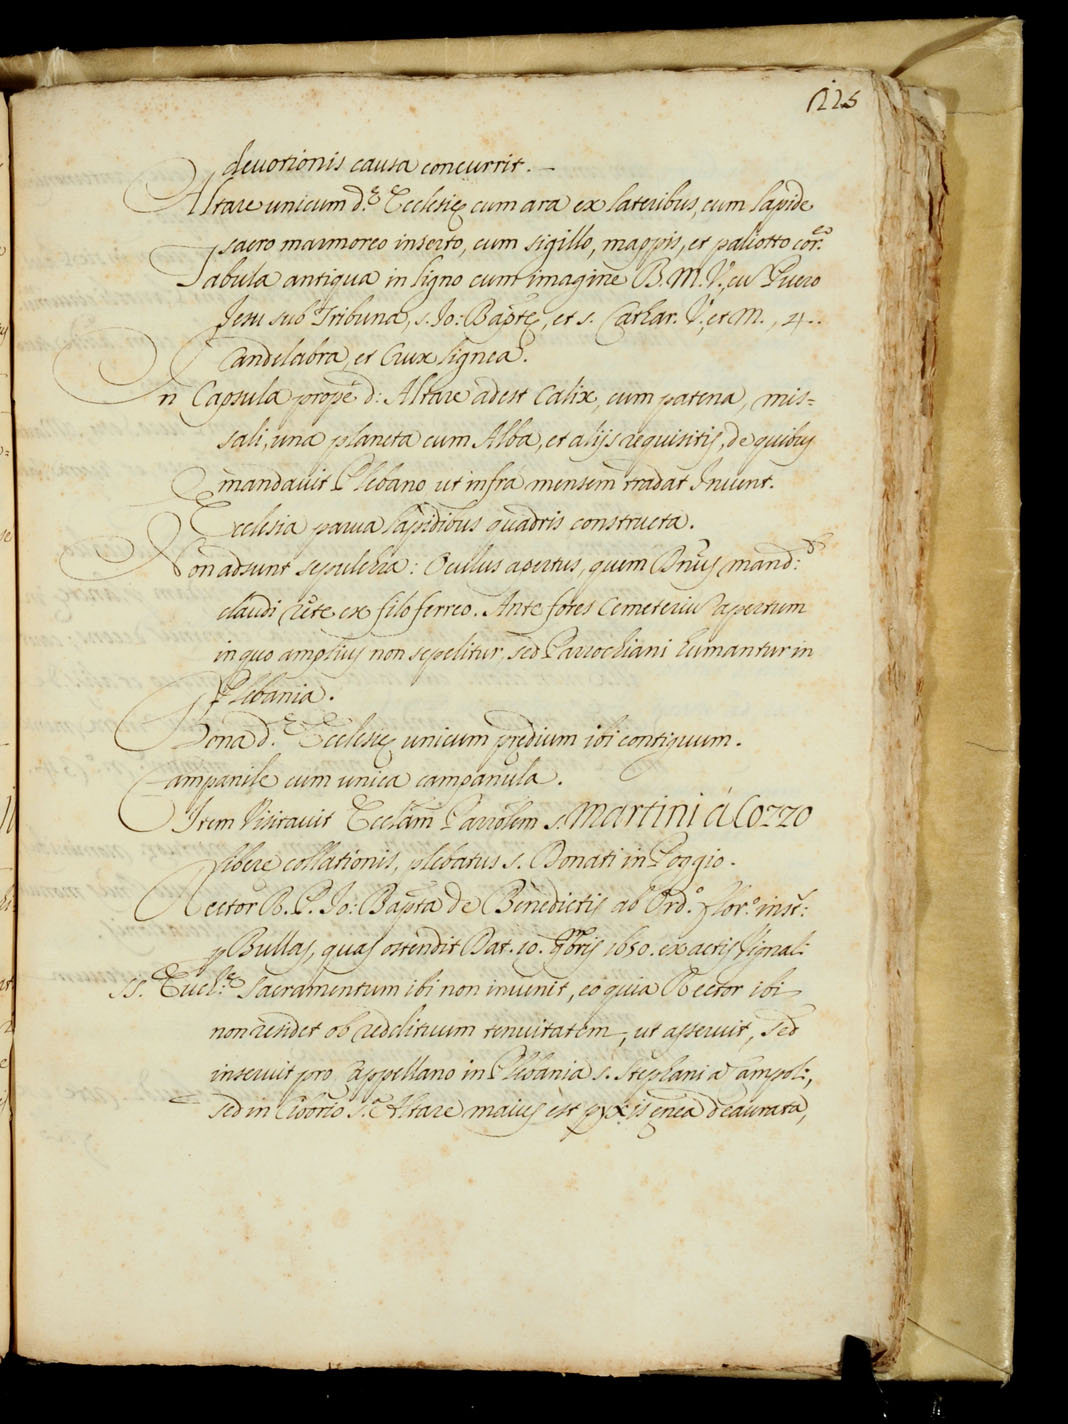 225
devotionis causa concurrit. —
Altare unicum d.ę Ecclesię cum ara ex lateribus, cum lapide
sacro marmoreo inserto, cum sigillo, mappis, et paliotto cor.eo
Tabula antiqua in ligno cum imagine B.M.V., cu Puero
Jesu sub Tribuna, s. Jo: Baptę, et s. Cathar. V. et M., 4.
Candelabra, et Crux lignea.
In Capsula propé d: Altare adest Calix, cum patena, mis=
sali, una planeta cum Alba, et alijs requisitis, de quibus
mandavit Plebano ut infrà mensem tradat Invent.
Ecclesia parva lapidibus quadris constructa.
Non adsunt sepulchra: Oculus apertus, quem Dnus mand:t
claudi rete ex filo ferreo. Ante fores Cemeteriu apertum
in quo amplius non sepelitur, sed Parrochiani humantur in
Plebania.
Bona d.ę Ecclesię unicum prędium ibi contiguum.
Campanile cum unica campanula.
Item Visitavit Ecclam Parrolem s. Martini à Cozzo
liberę collationis, plebatus s. Donati in Poggio.
Rector R. P. Jo: Bapta de Benedictis ab Ord.o Flor.o inst.:
p Bullas, quas ostendit Dat. 10. 9mbris 1650. ex actis Vignal:
SS. Euch.ę Sacramentum ibi non invenit, eo quia Rector ibi
non residet ob reddituum tenuitatem, ut asseruit, sed
inseruit pro Cappellano in Plebania s. Stephani a Campoli,
sed in Ciborio s.a Altare maius est pyxis ęnea deaurata,